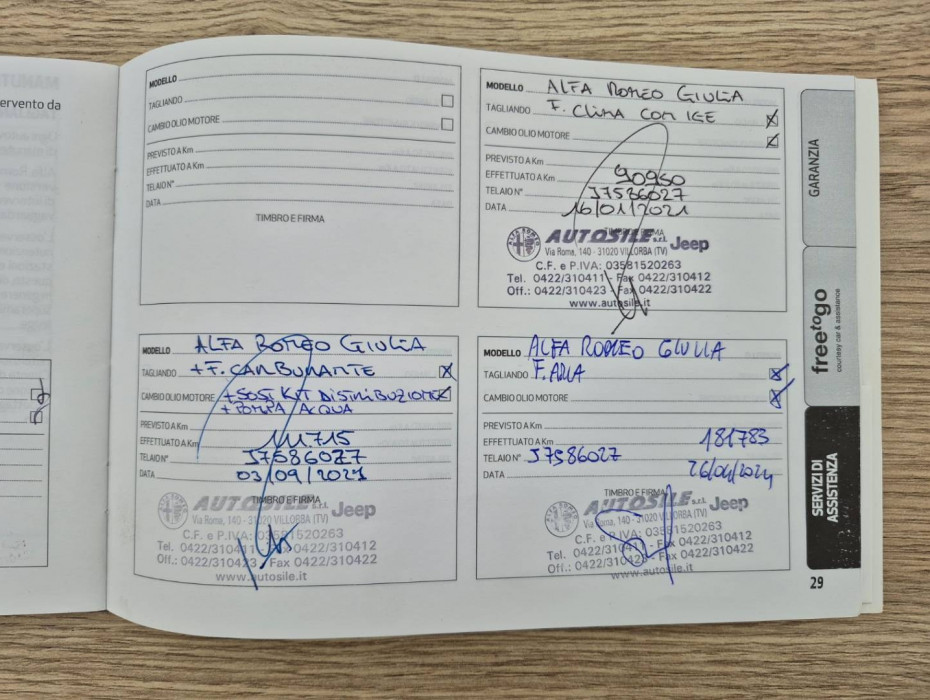 ervento da
MODELLO
TAGLIANDO
CAMBIO OLIO MOTORE
PREVISTO A Km
EFFETTUATO A Km
TELAIO N°
DATA
TIMBRO E FIRMA
MODELLO ALFA ROMEO GIULIA
TAGLIANDO F. CLIMA COM IGE X
CAMBIO OLIO MOTORE X
PREVISTO A Km
EFFETTUATO A Km 90960
TELAIO N° J7586027
DATA 16/01/2021
TIMBRO E FIRMA
AUTOSILE s.r.l. Jeep
Via Roma, 140 - 31020 VILLORBA (TV)
C.F. e P.IVA: 03581520263
Tel. 0422/310411 - Fax 0422/310412
Off.: 0422/310423 - Fax 0422/310422
www.autosile.it
MODELLO ALFA ROMEO GIULIA
TAGLIANDO +F. CARBURANTE X
CAMBIO OLIO MOTORE +SOST KIT DISTRIBUZIONE X
+ POMPA ACQUA
PREVISTO A Km
EFFETTUATO A Km 111.715
TELAIO N° J7586027
DATA 03/09/2021
TIMBRO E FIRMA
AUTOSILE s.r.l. Jeep
Via Roma, 140 - 31020 VILLORBA (TV)
C.F. e P.IVA: 03581520263
Tel. 0422/310411 - Fax 0422/310412
Off.: 0422/310423 - Fax 0422/310422
www.autosile.it
MODELLO ALFA ROMEO GIULIA
TAGLIANDO F. ARIA X
CAMBIO OLIO MOTORE X
PREVISTO A Km
EFFETTUATO A Km 181783
TELAIO N° J7586027
DATA 26/04/2024
TIMBRO E FIRMA
AUTOSILE s.r.l. Jeep
Via Roma, 140 - 31020 VILLORBA (TV)
C.F. e P.IVA: 03581520263
Tel. 0422/310411 - Fax 0422/310412
Off.: 0422/310423 - Fax 0422/310422
www.autosile.it
GARANZIA
freetogo
courtesy car & assistance
SERVIZI DI
ASSISTENZA
29